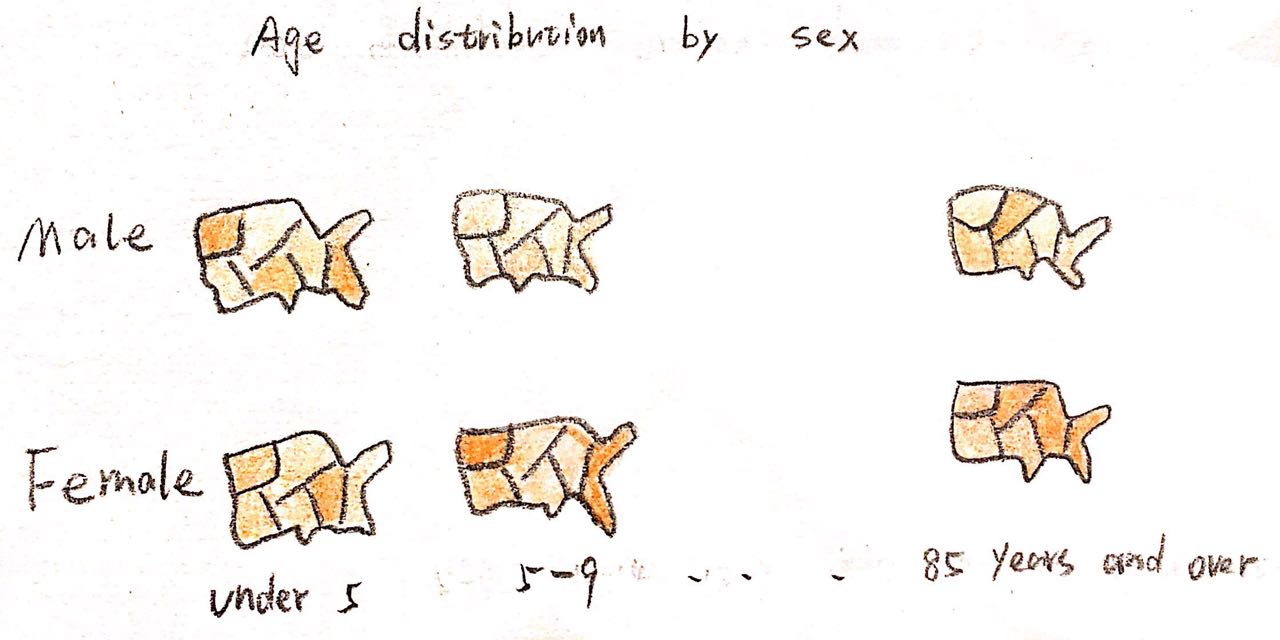 Age distribution by sex
Male
Female
under 5 5-9 . . . 85 years and over